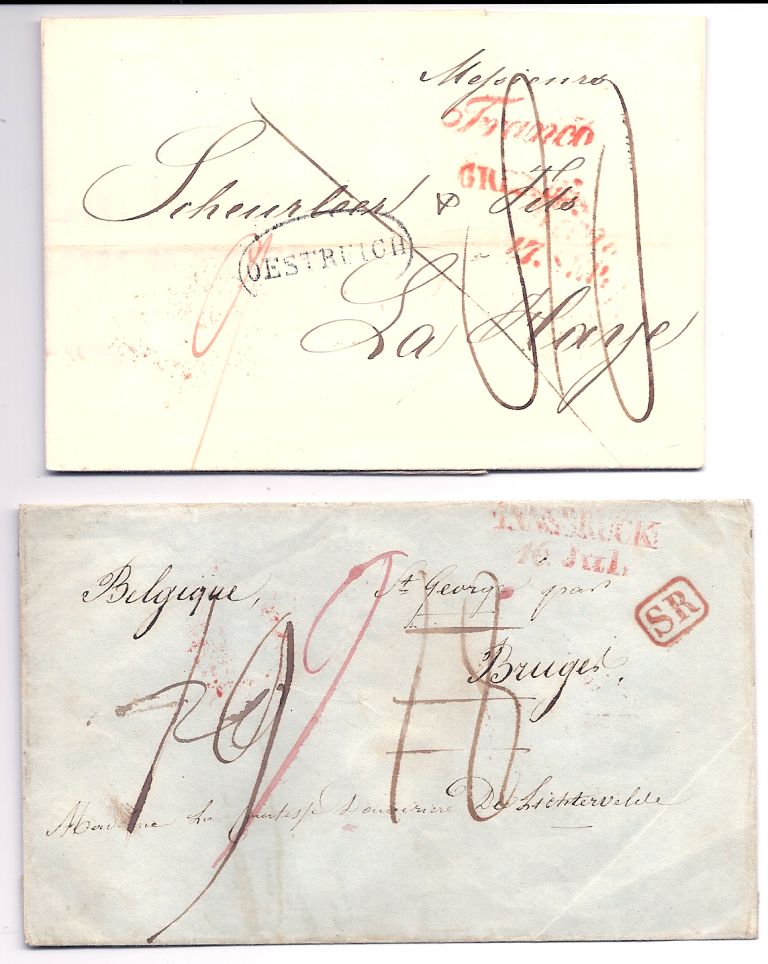 Messieurs
Franco
Scheurleer & Fils
OESTREICH
La Haye
INNSBRUCK
16. JUL.
Belgique,
St George par
SR
Bruges.
Madame La Comtesse Douairiere De Lichtervelde